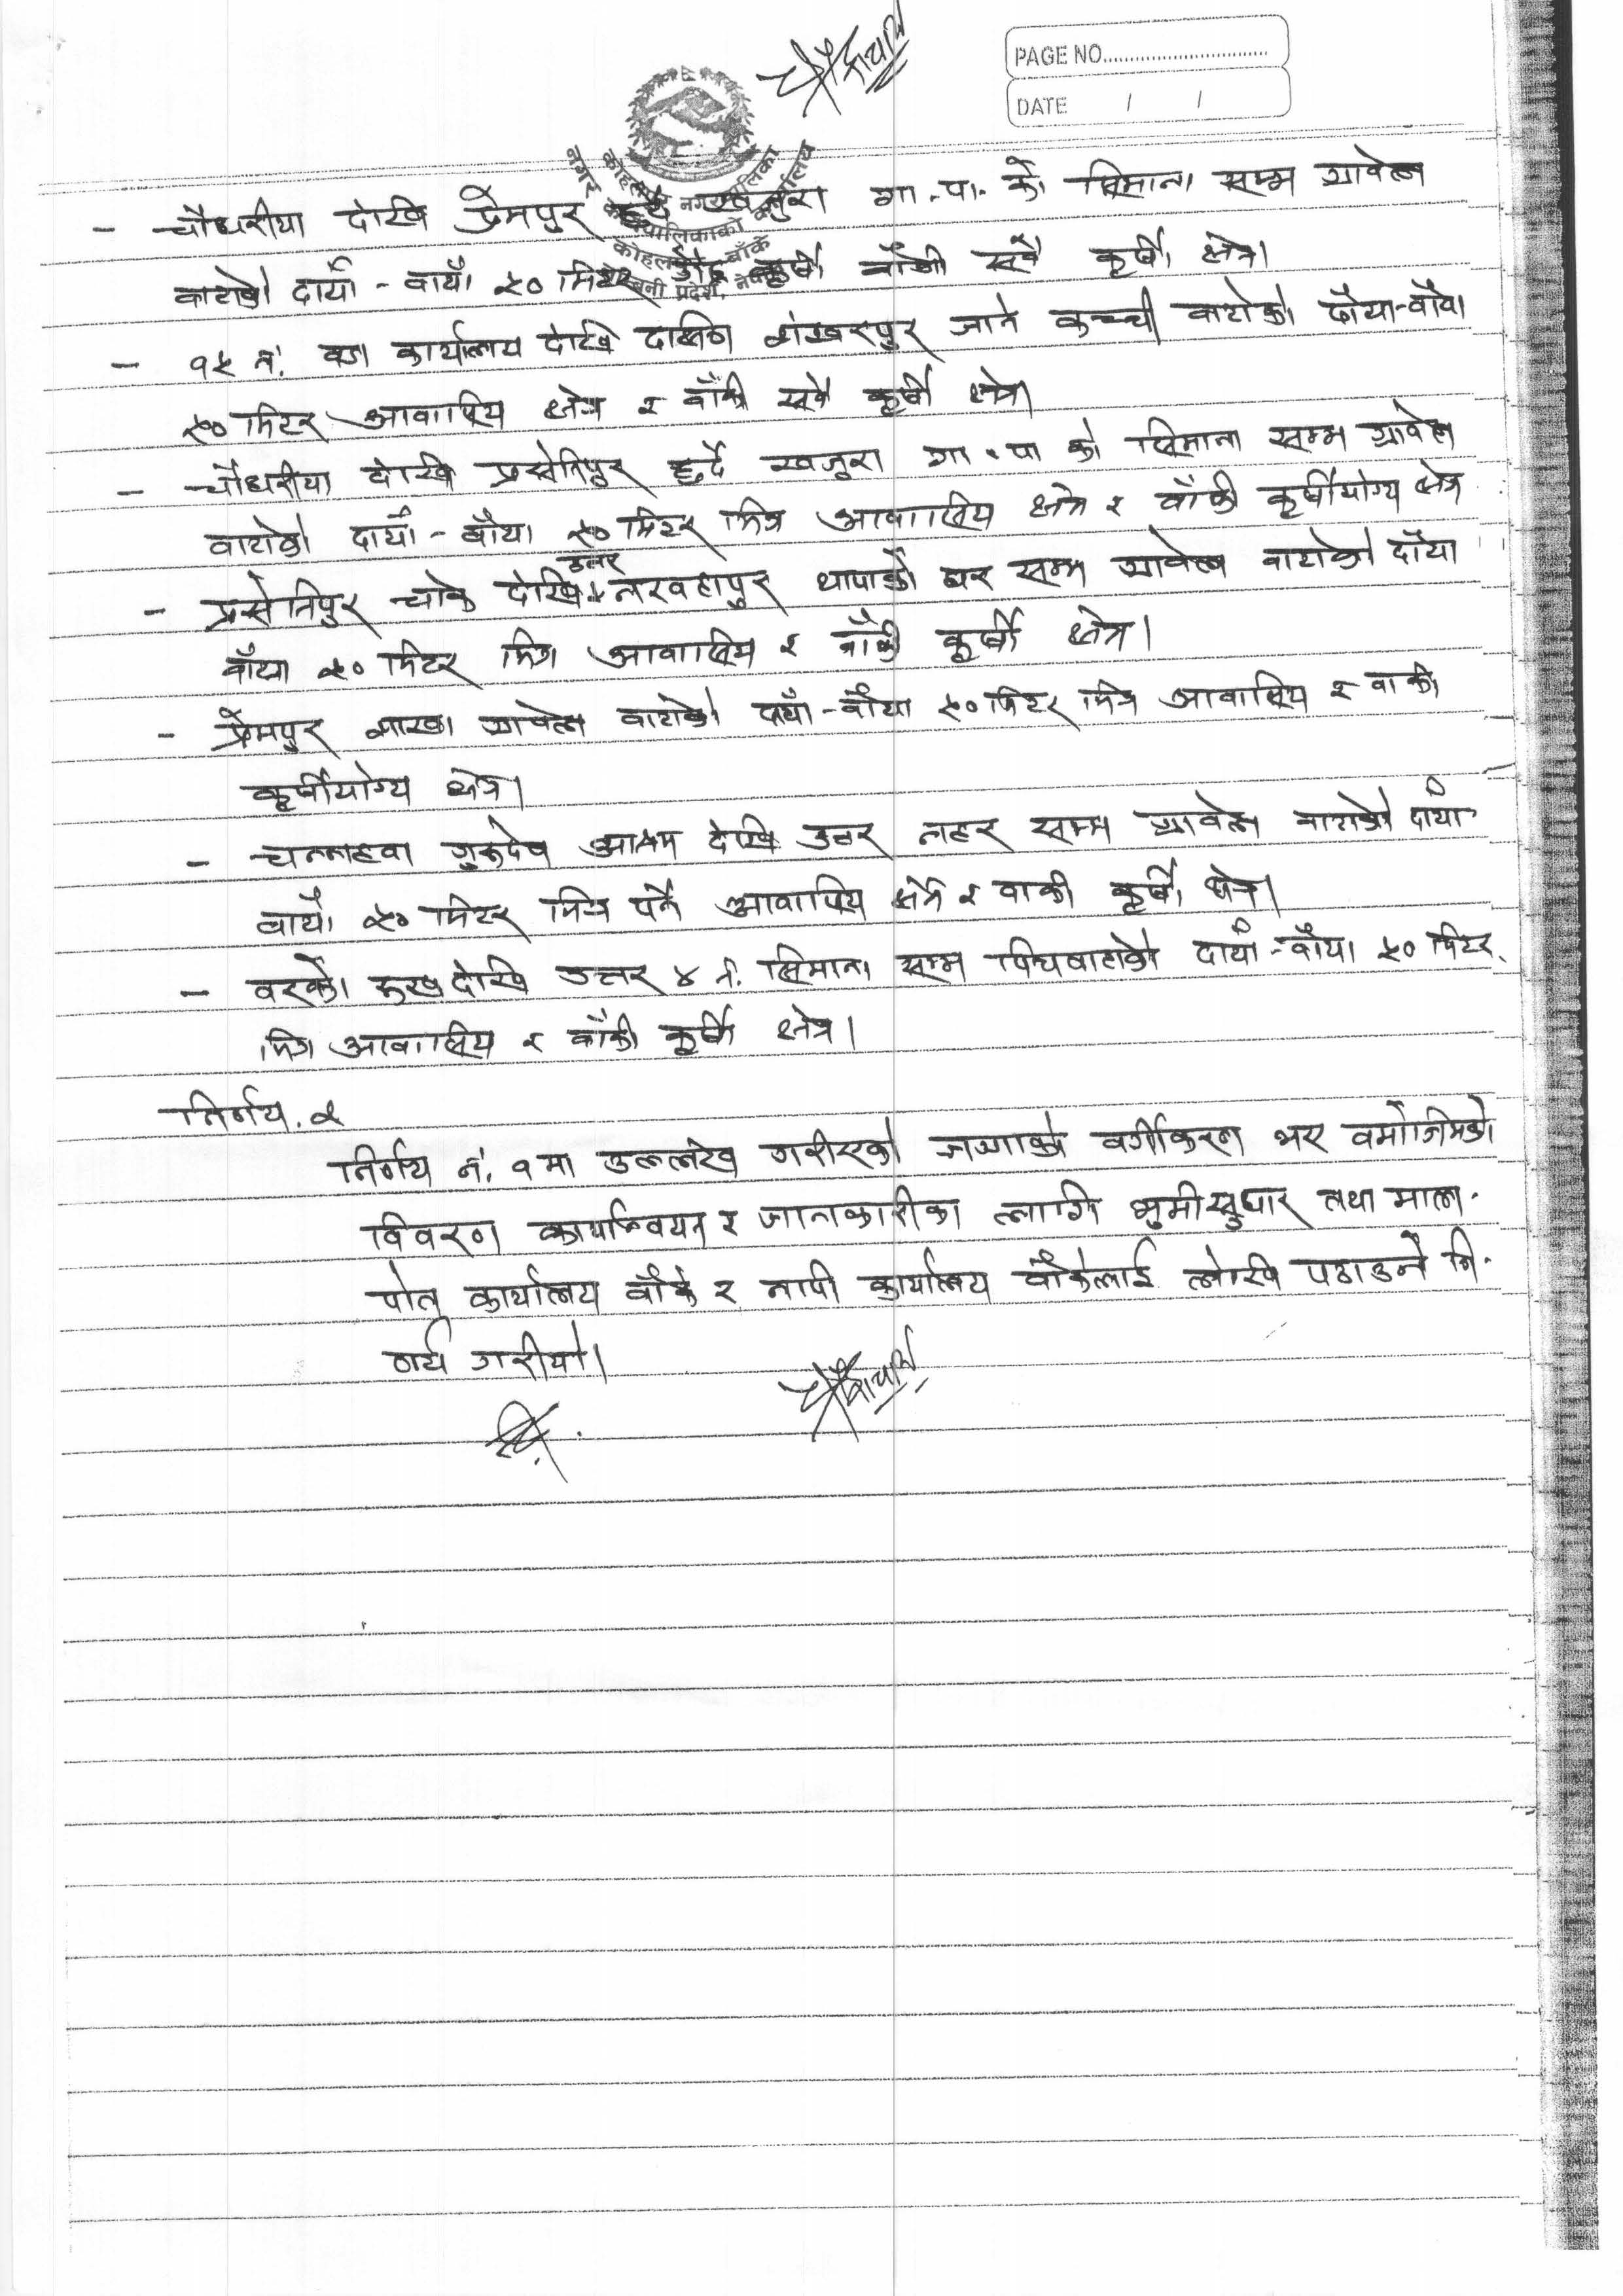 PAGE NO..............................
DATE / /
- चौधरीया देखि प्रेमपुर हुदै खजुरा गा.पा. को सिमाना सम्म ग्रावेल
वाटोको दायाँ - वायाँ ५० मिटर कृर्षी बाँकी सवै कृर्षी क्षेत्र।
- १५ नं. वडा कार्यालय देखि दक्षिण शंखरपुर जाने कच्ची वाटोको दाँया-वाँया
५० मिटर आवासिय क्षेत्र र वाँकी सवै कृर्षी क्षेत्र।
- चौधरीया देखि प्रसेनिपुर हुदै खजुरा गा.पा को सिमाना सम्म ग्रावेल
वाटोको दायाँ - वाँया ५० मिटर भित्र आवासिय क्षेत्र र वाँकी कृर्षीयोग्य क्षेत्र
- प्रसेनिपुर चोक देखि उत्तर नरवटापुर थापाको घर सम्म ग्रावेल वाटोको दाँया
वाँया ५० मिटर भित्र आवासिय र बाँकी कृर्षी क्षेत्र।
- प्रेमपुर शाखा ग्रावेल वाटोको दायाँ - वाँया ५० मिटर भित्र आवासिय र वाकी
कृर्षीयोग्य क्षेत्र।
- चन्नहवा गुरुदेव आश्रम देखि उत्तर नहर सम्म ग्रावेल वाटोको दायाँ
वायाँ ५० मिटर भित्र पर्ने आवासिय क्षेत्र र वाकी कृर्षी क्षेत्र।
- वरको रुख देखि उत्तर ४ नं. सिमाना सम्म पिचवाटोको दायाँ - वाँया ५० मिटर
भित्र आवासिय र वाँकी कृर्षी क्षेत्र।
निर्णय. २
निर्णय नं. १ मा उल्लेख गरीएको जग्गाको वर्गीकरण भए वमोजिमको
विवरण कार्यान्वयन र जानकारीका लागि भुमीसुधार तथा माल-
पोत कार्यालय वाँके र नापी कार्यालय वाँकेलाई लेखि पठाउने नि-
र्णय गरीयो।